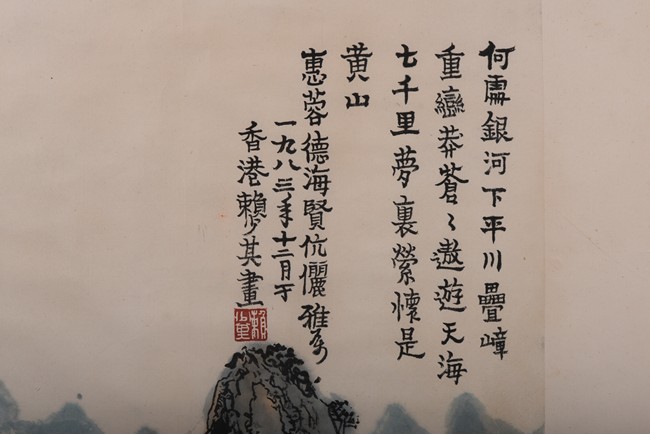 何處銀河下平川疊嶂
重巒莽蒼〻遨遊天海
七千里夢裏縈懷是
黄山
惠蓉德海賢伉儷雅屬
一九八三年十二月于
香港賴少其畫